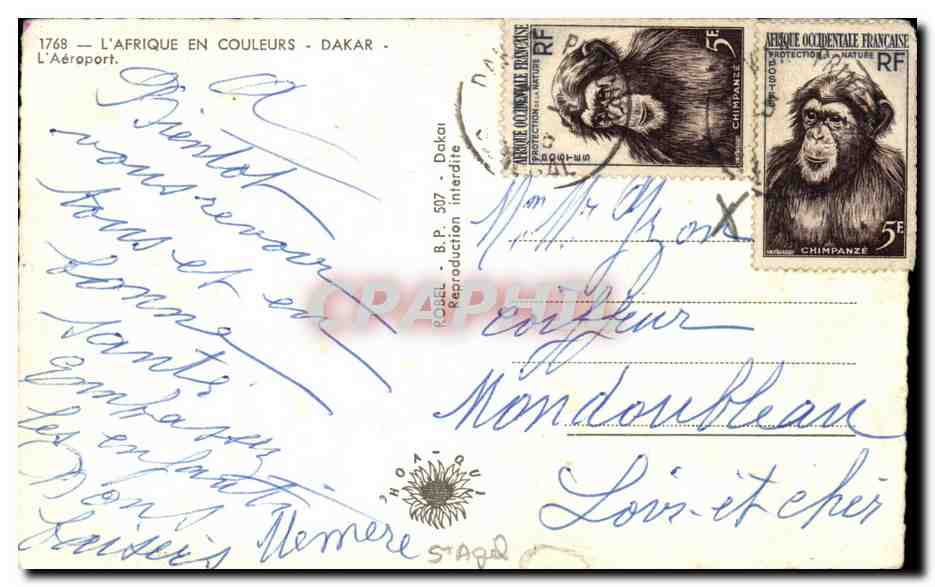 1768 — L'AFRIQUE EN COULEURS - DAKAR -
L'Aéroport.
A
Bientot
vous revoir
tous et en
bonne
santé
Embrassez
les enfants
Bons
baisers Memere
ROBEL - B.P. 507 - Dakar
Reproduction interdite
CPAPHIL
AFRIQUE OCCIDENTALE FRANÇAISE
PROTECTION DE LA NATURE RF
POSTES
CHIMPANZÉ
5F
AFRIQUE OCCIDENTALE FRANÇAISE
PROTECTION DE LA NATURE RF
POSTES
CHIMPANZÉ 5F
X
Mme Mr
coiffeur
Mondoubleau
Loir-et cher
St Agil